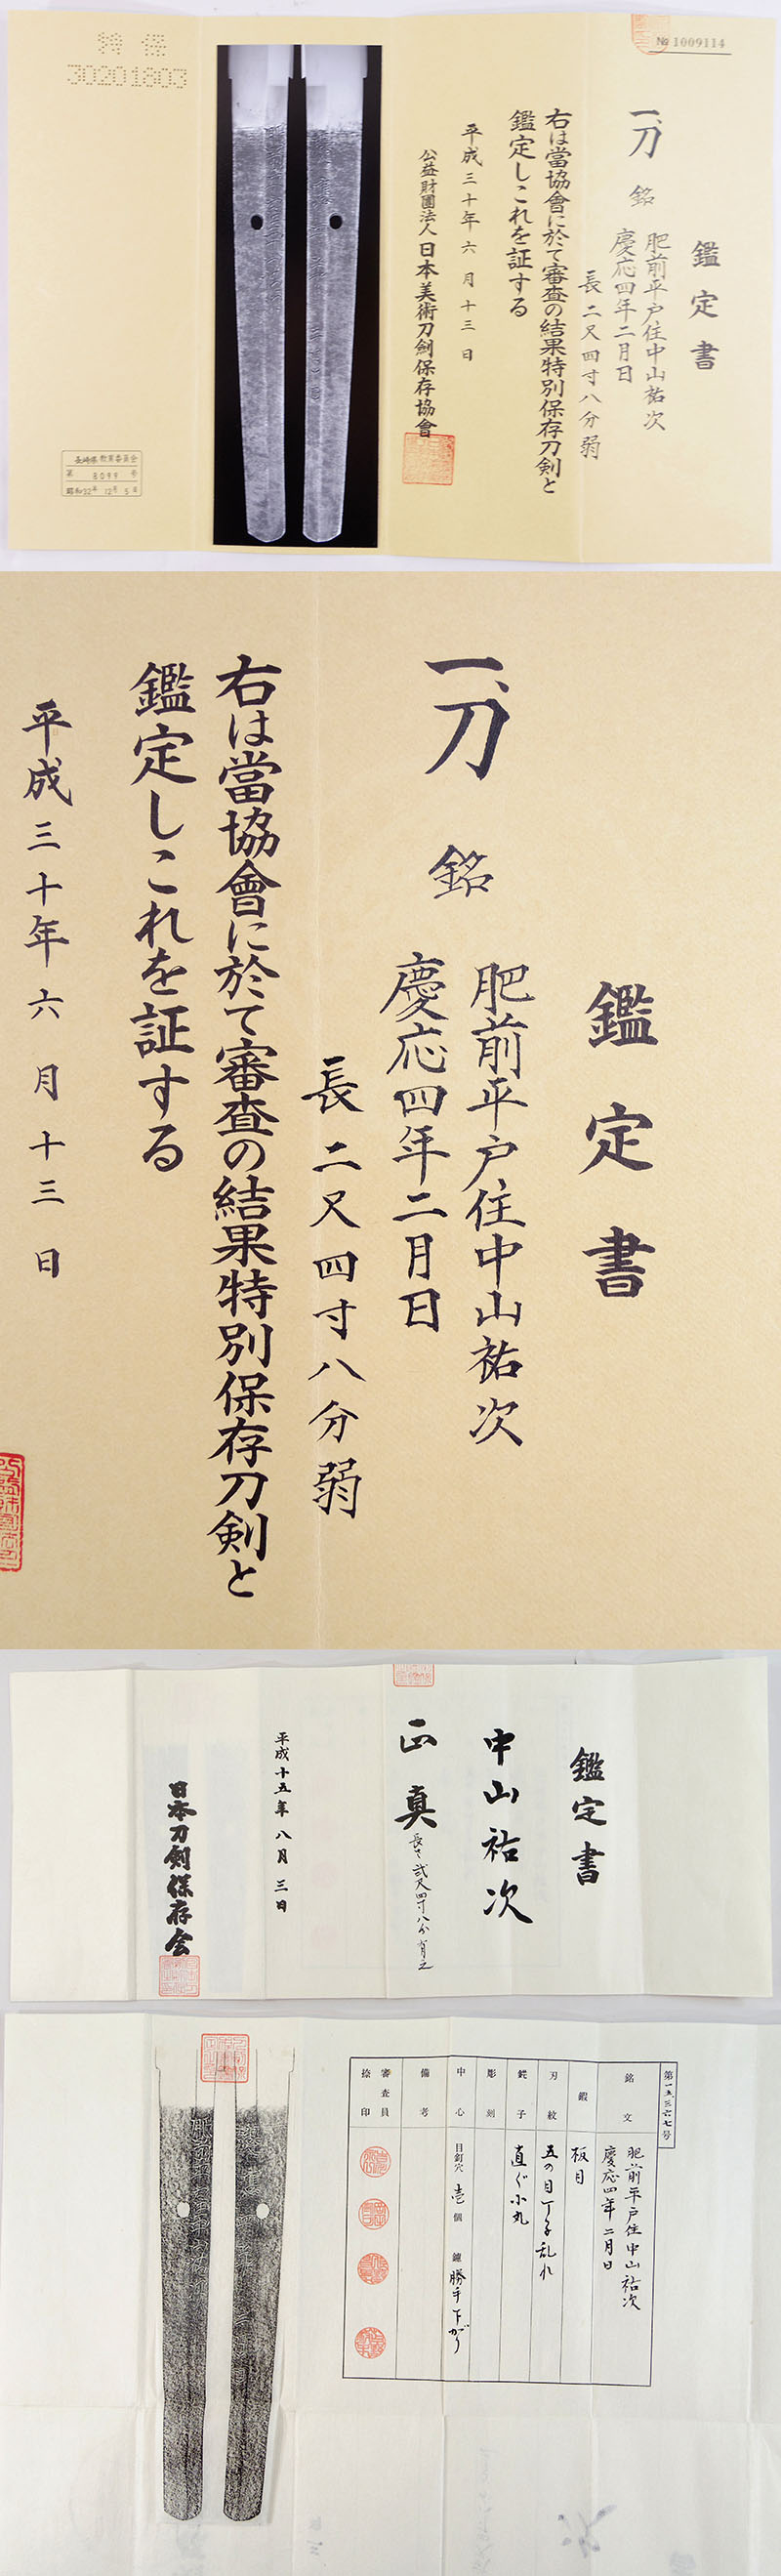 № 1009114
鑑定書
一、刀 銘 肥前平戸住中山祐次
慶応四年二月日
長 二尺四寸八分弱
右は當協會に於て審査の結果特別保存刀剣と
鑑定しこれを証する
平成三十年六月十三日
公益財團法人 日本美術刀劍保存協會
特保
30201803
長崎県教育委員会
第 8099 号
昭和32年12月5日
鑑定書
一、刀 銘 肥前平戸住中山祐次
慶応四年二月日
長二尺四寸八分弱
右は當協會に於て審査の結果特別保存刀剣と
鑑定しこれを証する
平成三十年六月十三日
鑑定書
中山祐次
正真
長さ 弐尺四寸八分 有之
平成十五年八月三日
日本刀剣保存会
第一五三六七号
銘文 肥前平戸住中山祐次
慶応四年二月日
鍛 板目
刃紋 五の目丁子乱れ
鋩子 直ぐ小丸
彫刻
中心 目釘穴 壱個 鑢 勝手下がり
備考
審査員
捺印